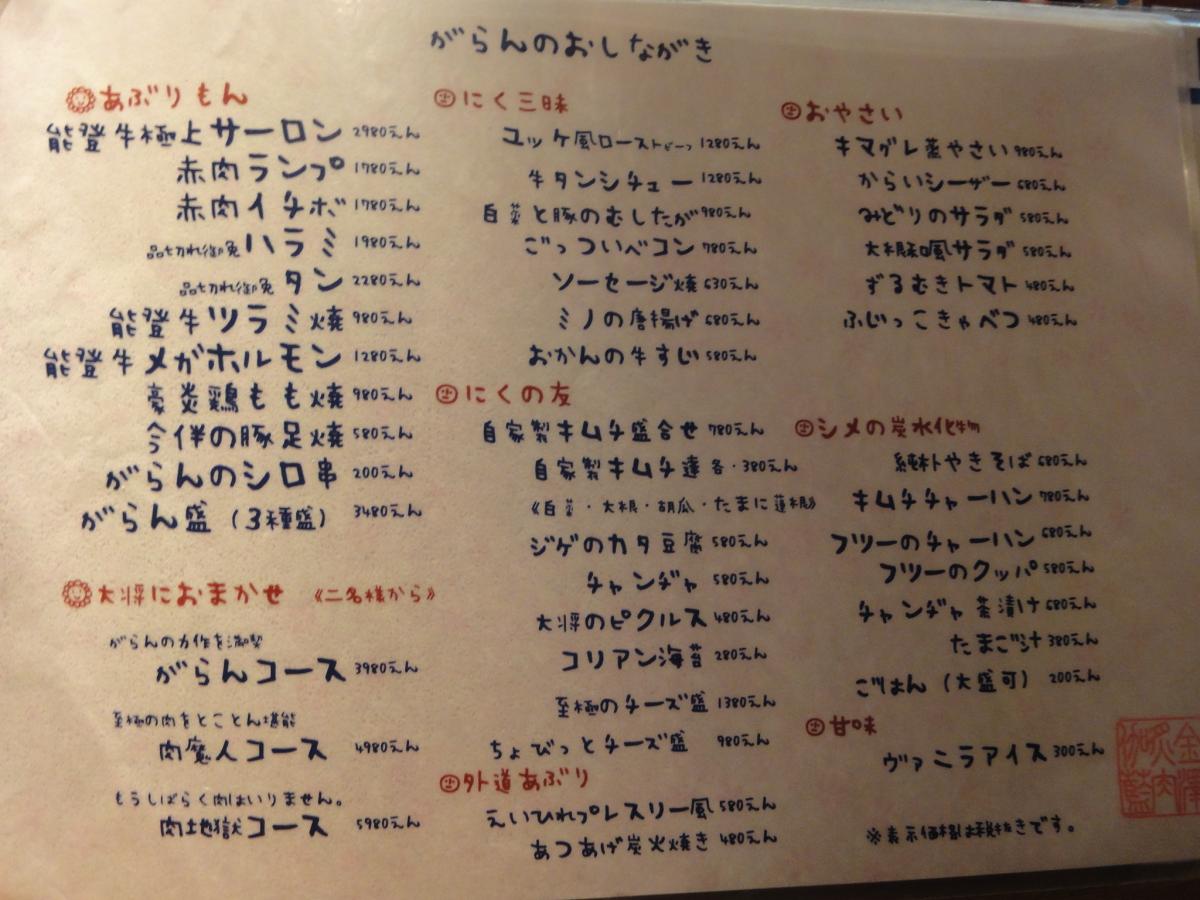 がらんのおしながき
あぶりもん
能登牛極上サーロン 2980えん
赤肉ランプ 1780えん
赤肉イチボ 1780えん
品切れ御免 ハラミ 1980えん
品切れ御免 タン 2280えん
能登牛ツラミ焼 980えん
能登牛メガホルモン 1280えん
豪炎鶏もも焼 980えん
今伴の豚足焼 580えん
がらんのシロ串 200えん
がらん盛(3種盛) 3480えん
大将におまかせ 《二名様から》
がらんの力作を満喫
がらんコース 3980えん
至極の肉をとことん堪能
肉魔人コース 4980えん
もうしばらく肉はいりません。
肉地獄コース 5980えん
にく三昧
ユッケ風ローストビーフ 1280えん
牛タンシチュー 1280えん
白菜と豚のむしたが 980えん
ごっついベコン 780えん
ソーセージ焼 630えん
ミノの唐揚げ 680えん
おかんの牛すじ 580えん
にくの友
自家製キムチ盛合せ 780えん
自家製キムチ達 各・380えん
《白菜・大根・胡瓜・たまに蓮根》
ジゲのカタ豆腐 580えん
チャンヂャ 580えん
大将のピクルス 480えん
コリアン海苔 280えん
至極のチーズ盛 1380えん
ちょびっとチーズ盛 980えん
外道あぶり
えいひれプレスリー風 580えん
あつあげ炭火焼き 480えん
おやさい
キマグレ蒸やさい 980えん
からいシーザー 680えん
みどりのサラダ 580えん
大根和風サラダ 580えん
ずるむきトマト 480えん
ふじっこきゃべつ 480えん
シメの炭水化物
純朴やきそば 680えん
キムチチャーハン 780えん
フツーのチャーハン 680えん
フツーのクッパ 580えん
チャンヂャ茶漬け 680えん
たまご汁 380えん
ごはん(大盛可) 200えん
甘味
ヴァニラアイス 300えん
※表示価格は税抜きです。